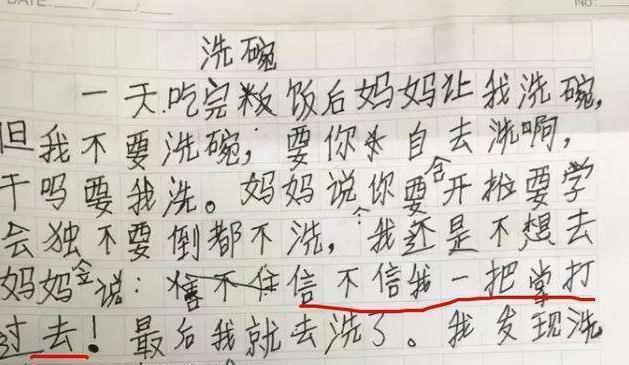 DATE
NO:
洗碗
一天吃完饭后妈妈让我洗碗,
但我不要洗碗,要你自去洗啊,
干吗要我洗。妈妈说你要开始要学
会独不要倒都不洗,我还是不想去
妈妈说:信不信我一把掌打
过去!最后我就去洗了。我发现洗